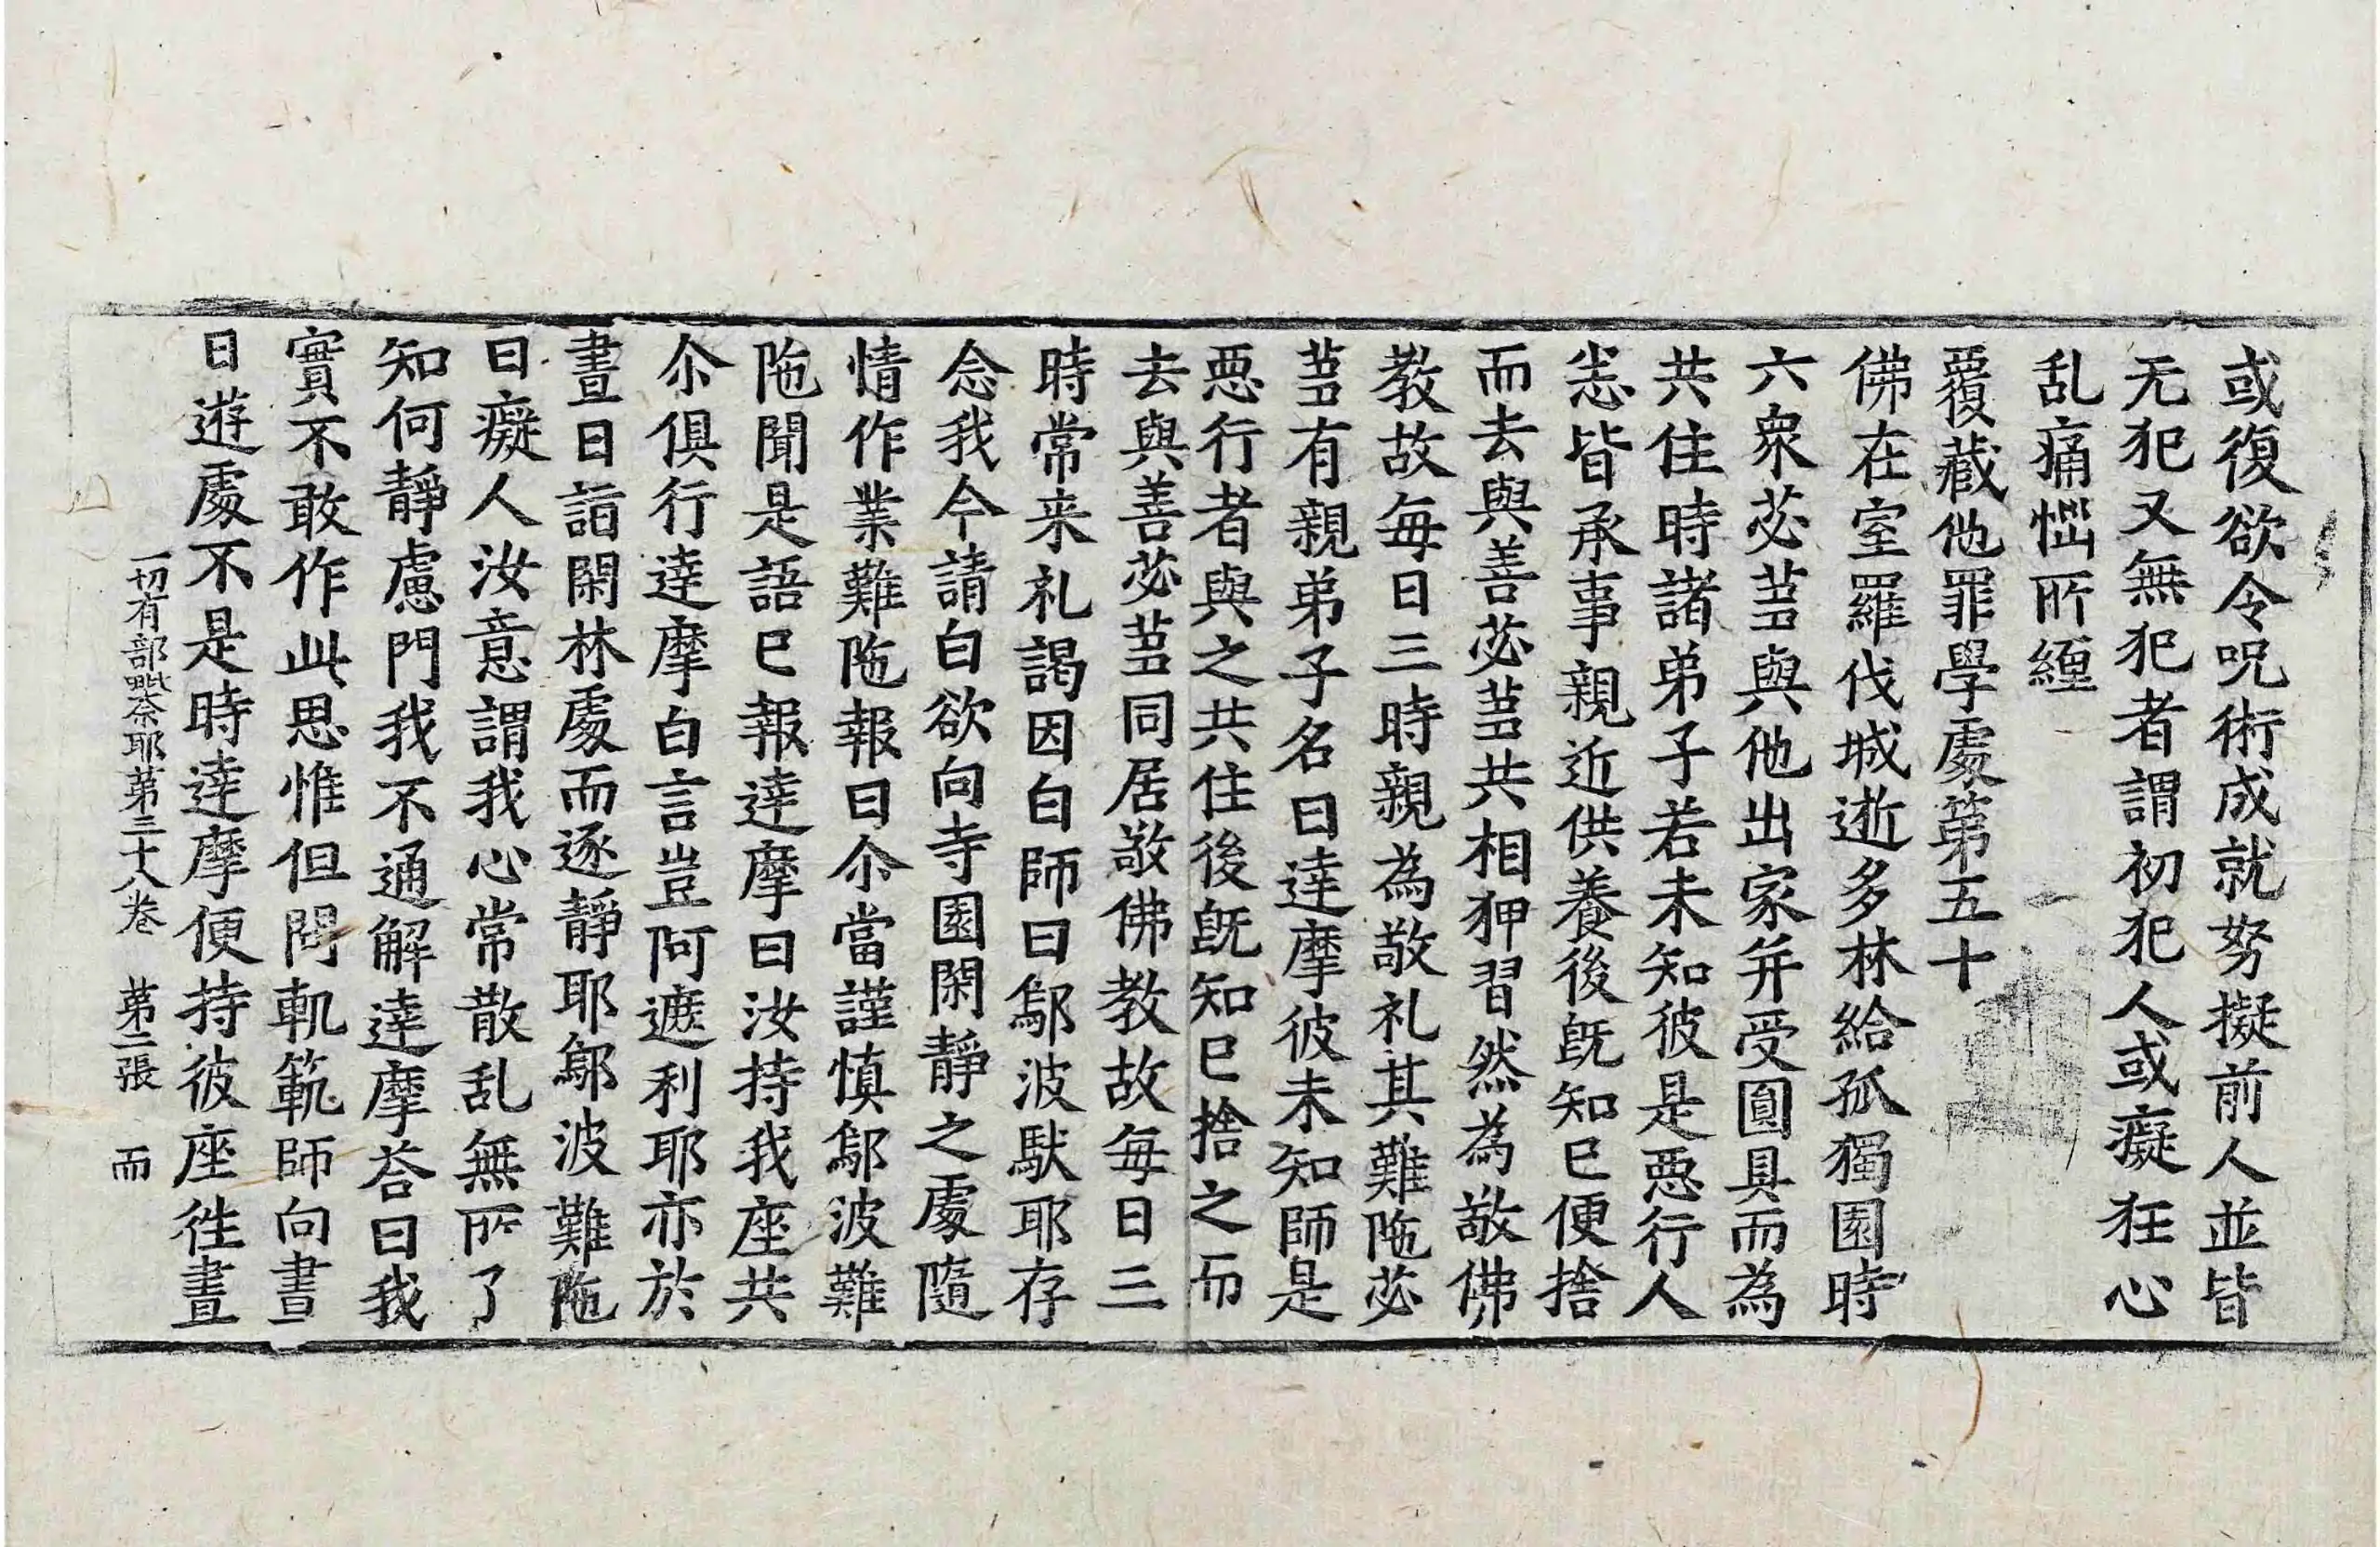 或復欲令呪術成就努擬前人並皆
无犯又無犯者謂初犯人或癡狂心
乱痛惱所纏
覆藏他罪學處第五十
佛在室羅伐城逝多林給孤獨園時
六衆苾蒭與他出家并受圓具而為
共住時諸弟子若未知彼是惡行人
悉皆承事親近供養後既知已便捨
而去與善苾蒭共相狎習然為敬佛
教故每日三時親為敬礼其難陁苾
蒭有親弟子名曰達摩彼未知師是
惡行者與之共住後既知已捨之而
去與善苾蒭同居敬佛教故每日三
時常来礼謁因白師曰鄔波馱耶存
念我今請白欲向寺園閑靜之處隨
情作業難陁報曰尒當謹慎鄔波難
陁聞是語已報達摩曰汝持我座共
尒俱行達摩白言豈阿遮利耶亦於
晝日詣閑林處而逐靜耶鄔波難陁
曰癡人汝意謂我心常散乱無所了
知何靜慮門我不通解達摩荅曰我
實不敢作此思惟但問軌範師向晝
日遊處不是時達摩便持彼座徃晝
一切有部毗奈耶第三十八卷　第二張　而